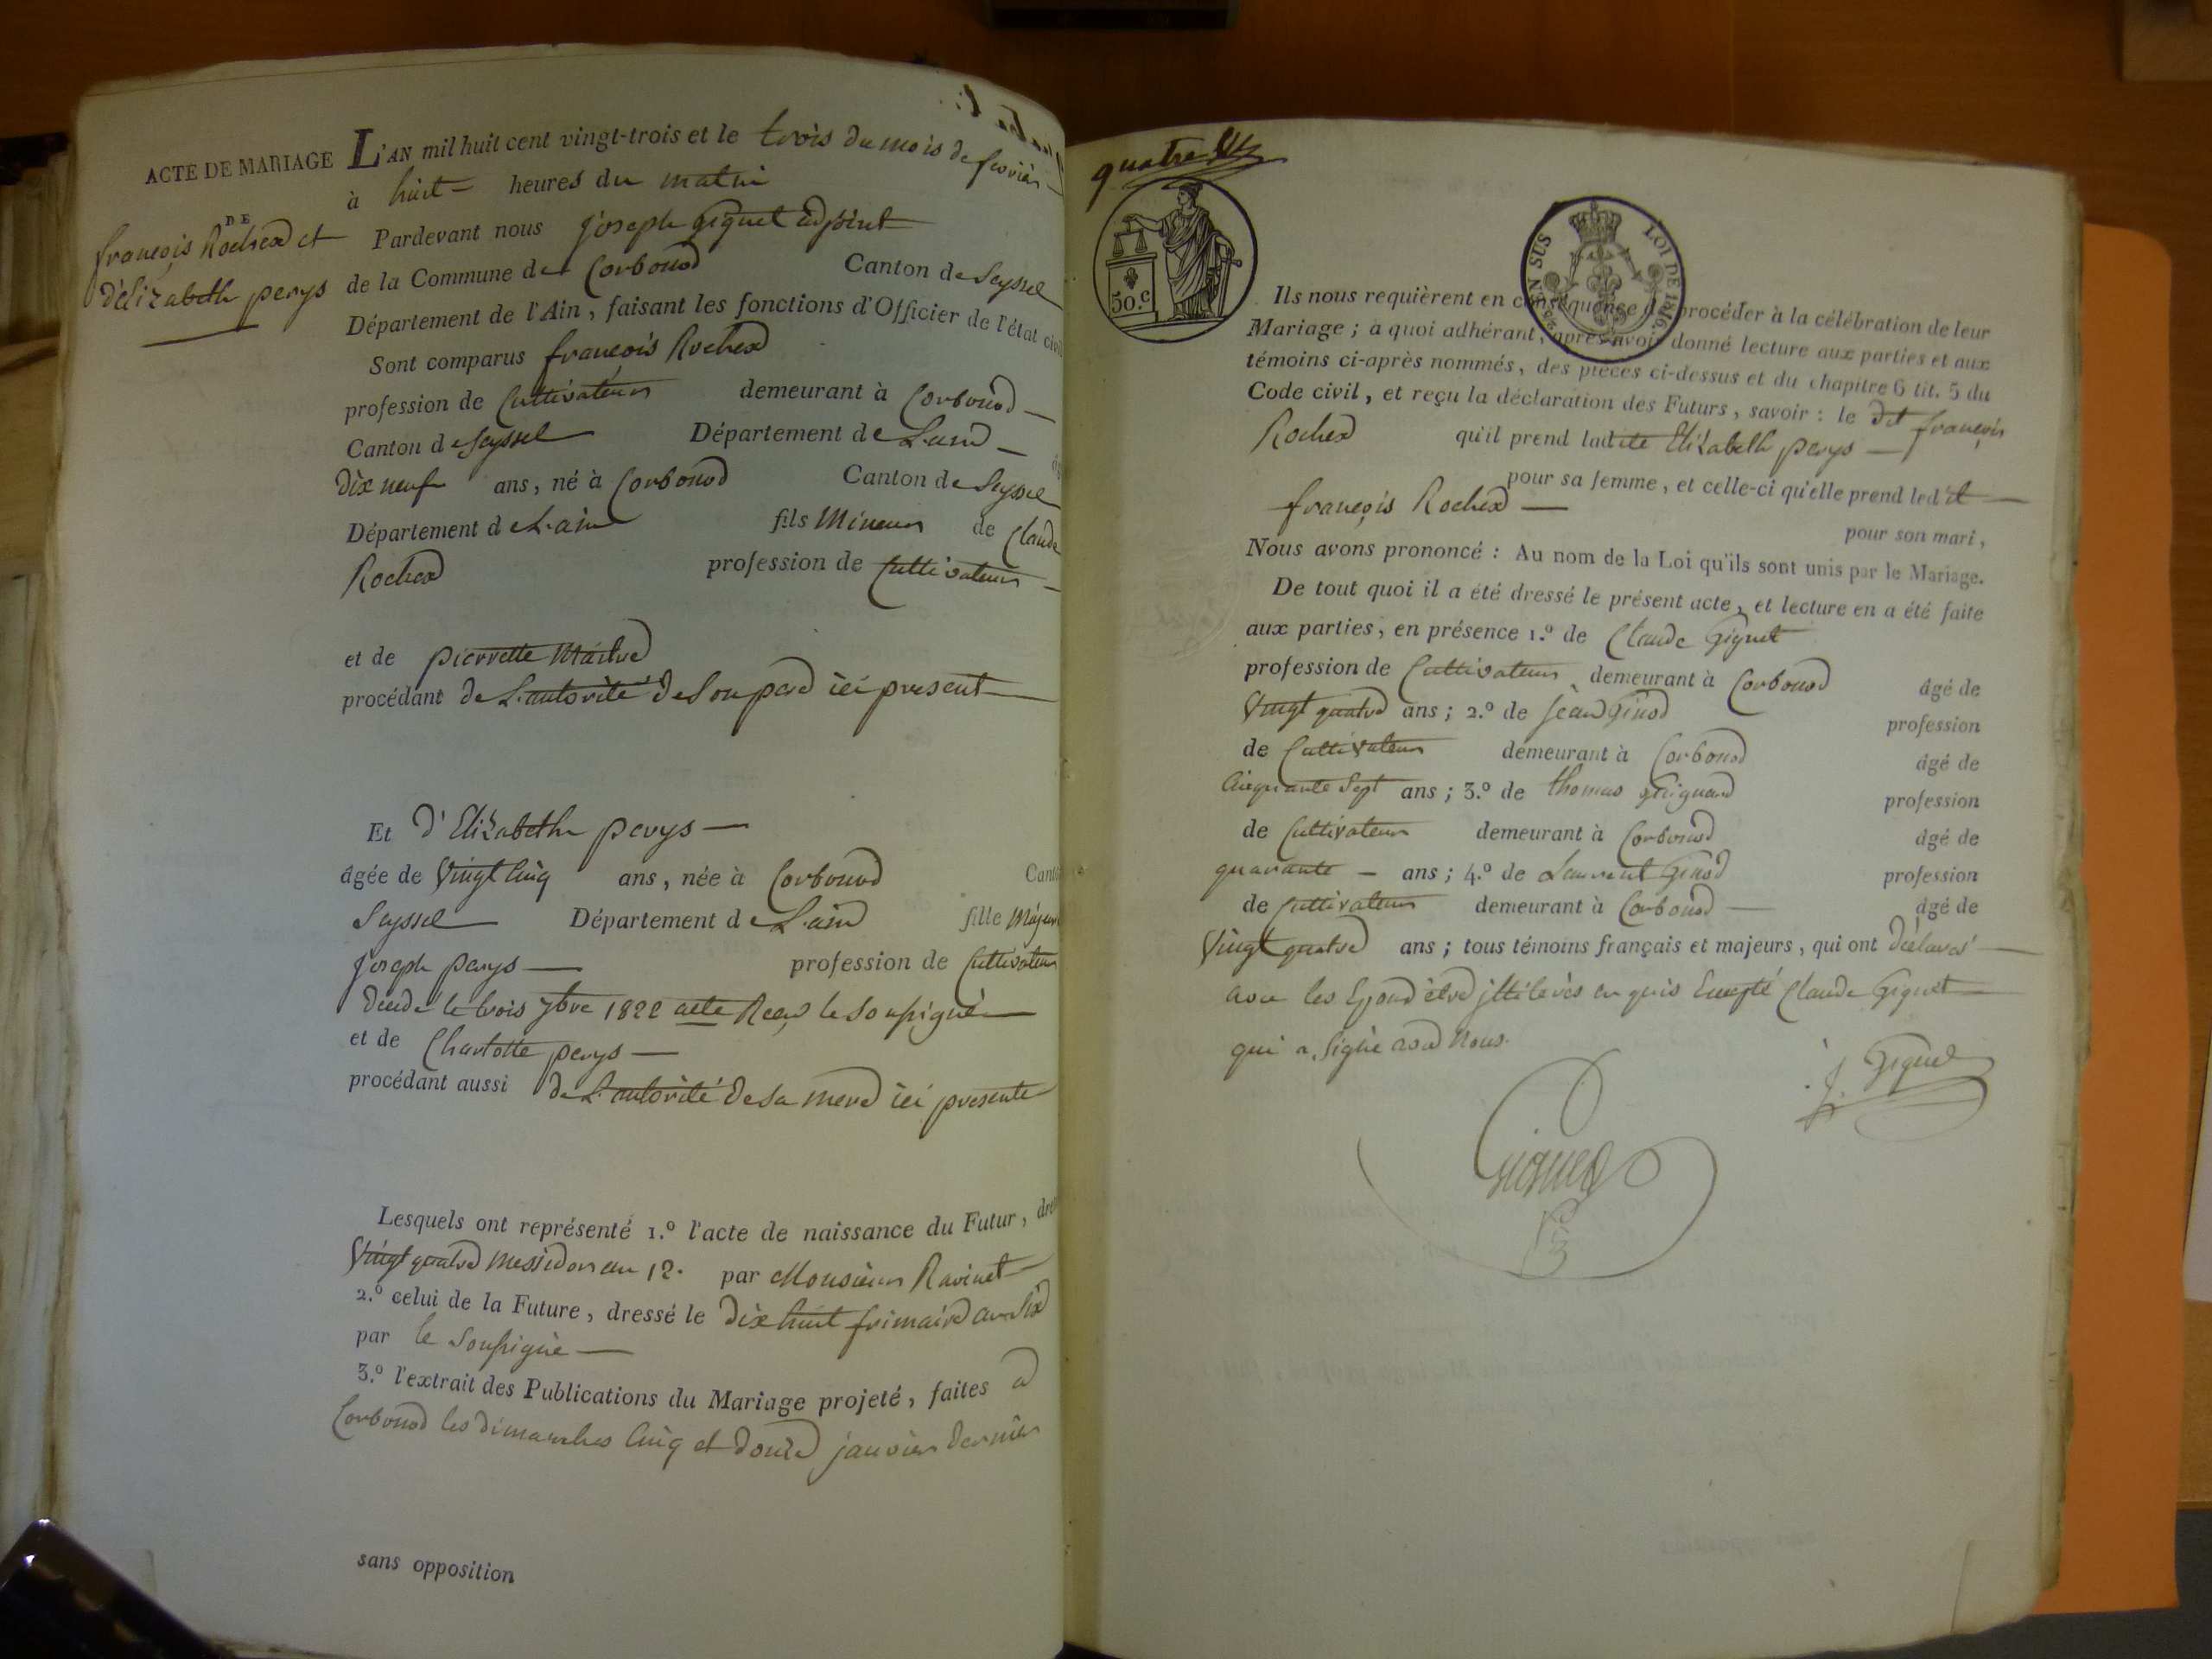 ACTE DE MARIAGE
DE
françois Rochex et
d'élizabeth perys
L'AN mil huit cent vingt-trois et le trois du mois de fevrier
à huit heures du matin
Pardevant nous joseph Giguet adjoint
de la Commune de Corbonod Canton de Seyssel
Département de l'Ain, faisant les fonctions d'Officier de l'état civil
Sont comparus françois Rochex
profession de Cultivateur demeurant à Corbonod
Canton de Seyssel Département de L'ain
dix neuf ans, né à Corbonod Canton de Seyssel
Département de L'ain fils Mineur de Claude
Rochex profession de Cultivateur
et de pierrette
procédant de L'autorité de Son pere ici present
Et d'Elizabeth perys
âgée de Vingt Cinq ans, née à Corbonod
Seyssel Département de L'ain fille
joseph perys profession de Cultivateur
le trois 7bre 1822 acte le soussigné
et de Charlotte perys
procédant aussi de L'autorité de Sa mere ici presente
Lesquels ont représenté 1.º l'acte de naissance du Futur,
Vingt quatre messidor an 12. par Monsieur Ravinet
2.º celui de la Future, dressé le dix huit frimaire an Six
par le Soussigné
3.º l'extrait des Publications du Mariage projeté, faites a
Corbonod les dimanches Cinq et douze janvier dernier
sans opposition
quatre
50.c
EN SUS
LOI DE 1816.
Ils nous requièrent en conséquence de procéder à la célébration de leur
Mariage; à quoi adhérant, après avoir donné lecture aux parties et aux
témoins ci-après nommés, des pièces ci-dessus et du chapitre 6 tit. 5 du
Code civil, et reçu la déclaration des Futurs, savoir : le dit françois
Rochex qu'il prend ladite Elizabeth perys
pour sa femme, et celle-ci qu'elle prend ledit
françois Rochex
pour son mari,
Nous avons prononcé : Au nom de la Loi qu'ils sont unis par le Mariage.
De tout quoi il a été dressé le présent acte, et lecture en a été faite
aux parties, en présence 1.º de Claude Giguet
profession de Cultivateur demeurant à Corbonod âgé de
Vingt quatre ans; 2.º de jean Ginod profession
de Cultivateur demeurant à Corbonod âgé de
Cinquante Sept ans; 3.º de thomas profession
de Cultivateur demeurant à Corbonod âgé de
quarante ans; 4.º de Laurent Ginod profession
de Cultivateur demeurant à Corbonod âgé de
Vingt quatre ans; tous témoins français et majeurs, qui ont déclaré
avec les être Claude Giguet
qui a Signé avec Nous.
J. Giguet
Giguet